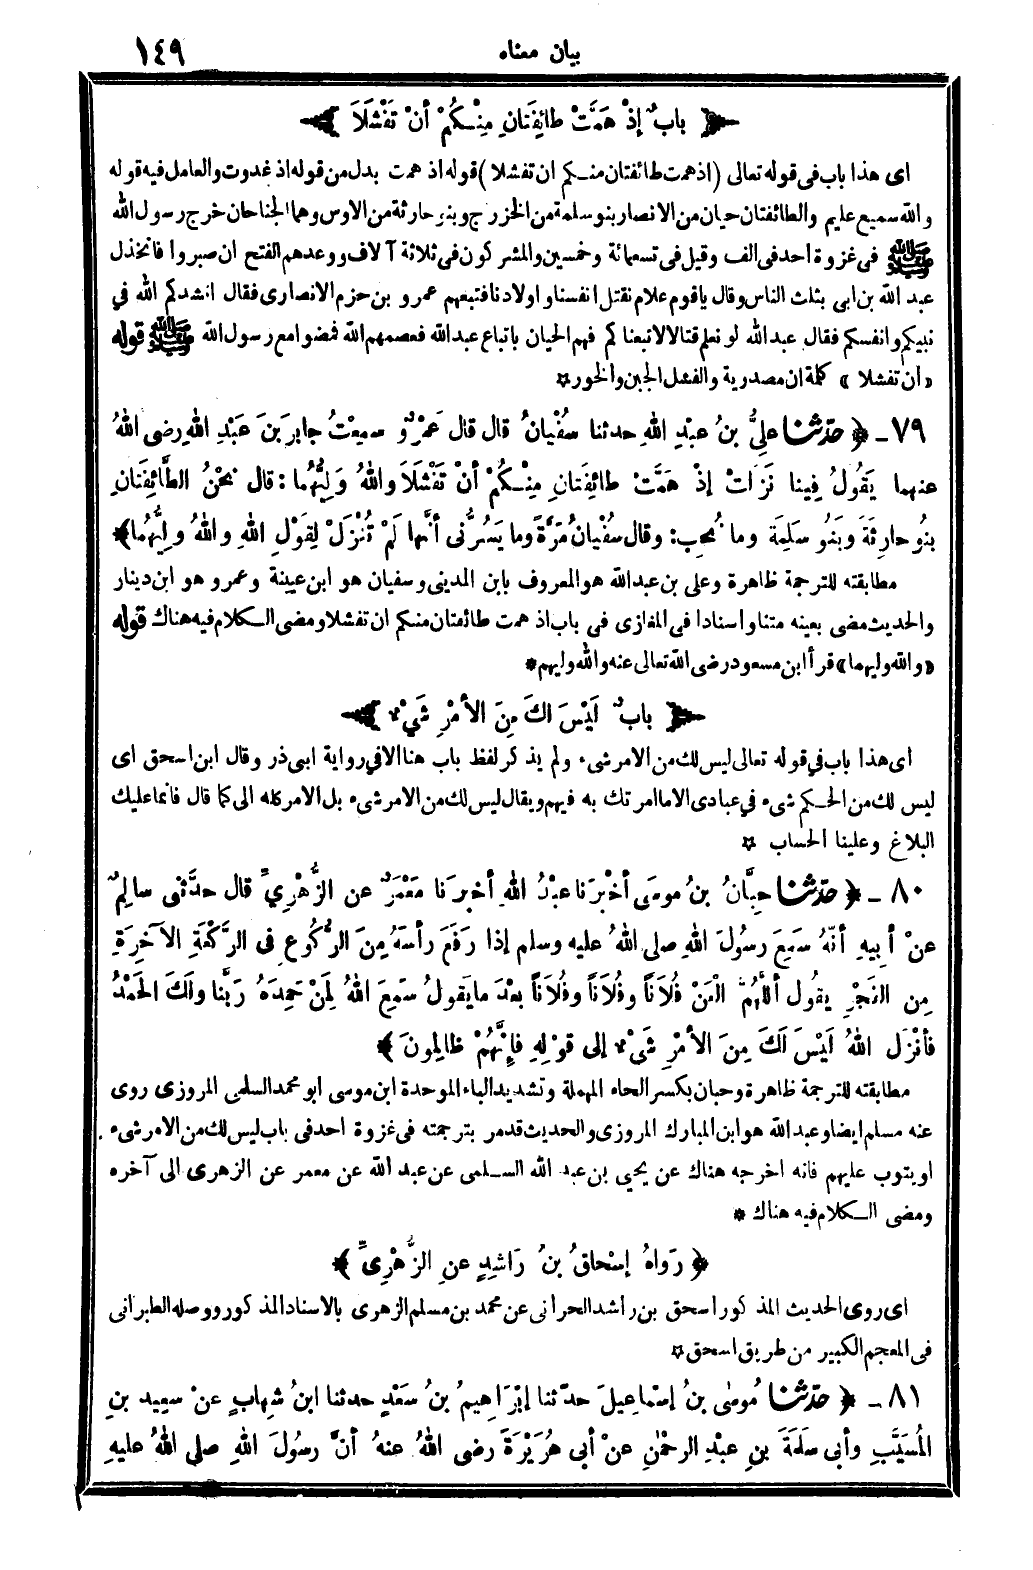 بيان معناه ١٤٩
﴿ بابٌ إِذْ هَمَّتْ طائِفَتَانِ مِنْكُمْ أَنْ تَفْشَلَا ﴾
اى هذا باب فى قوله تعالى (اذ همت طائفتان منكم ان تفشلا) قوله اذ همت بدل من قوله اذ غدوت والعامل فيه قوله
والله سميع عليم والطائفتان حيان من الانصار بنو سلمة من الخزرج وبنو حارثة من الاوس وهما الجناحان خرج رسول الله
ﷺ فى غزوة احد فى الف وقيل فى تسعمائة وخمسين والمشركون فى ثلاثة آلاف ووعدهم الفتح ان صبروا فانخذل
عبد الله بن ابى بثلث الناس وقال يا قوم علام نقتل انفسنا واولادنا فتبعهم عمرو بن حزم الانصارى فقال انشدكم الله فى
نبيكم وانفسكم فقال عبد الله لو نعلم قتالا لاتبعناكم فهم الحيان باتباع عبد الله فعصمهم الله فمضوا مع رسول الله ﷺ قوله
«ان تفشلا» كلمة ان مصدرية والفشل الجبن والخور ☆
٧٩ - ﴿ حدّثنا علِيُّ بنُ عبْدِ اللهِ حدثنا سُفْيانُ قال قال عَمْرٌو سمِعْتُ جابِرَ بنَ عَبْدِ اللهِ رضى اللهُ
عنهما يَقُولُ فِينا نَزَلَتْ إِذْ هَمَّتْ طائِفَتَانِ مِنْكُمْ أَنْ تَفْشَلَا واللهُ وَلِيُّهُما : قال نَحْنُ الطَّائِفَتَانِ
بنُو حارِثَةَ وبَنُو سَلِمَةَ وما نُحِب: وقال سُفْيانُ مَرَّةً وما يَسُرُّنى أنَّها لَمْ تُنْزَلْ لِقَوْلِ اللهِ واللهُ ولِيُّهُما﴾
مطابقته للترجمة ظاهرة وعلى بن عبدالله هو المعروف بابن المدينى وسفيان هو ابن عيينة وعمرو هو ابن دينار
والحديث مضى بعينه متنا واسنادا فى المغازى فى باب اذ همت طائفتان منكم ان تفشلا ومضى الكلام فيه هناك قوله
«والله وليهما» قرأ ابن مسعود رضى الله تعالى عنه والله وليهم *
﴿ بابٌ لَيْسَ لكَ مِنَ الأمْرِ شَىْءٌ ﴾
اى هذا باب فى قوله تعالى ليس لك من الامر شىء ولم يذكر لفظ باب هنا الا فى رواية ابى ذر وقال ابن اسحق اى
ليس لك من الحكم شىء فى عبادى الا ما امرتك به فيهم ويقال ليس لك من الامر شىء بل الامر كله الى كما قال فانما عليك
البلاغ وعلينا الحساب ☆
٨٠ - ﴿ حدّثنا حِبَّانُ بنُ موسَى أخْبرَنا عبْدُ اللهِ أخبرَنا مَعْمَرٌ عنِ الزُّهْرِىِّ قال حدَّثنى سالِمٌ
عنْ أبِيهِ أنَّهُ سَمِعَ رسُولَ اللهِ صلى اللهُ عليه وسلم إذا رَفَعَ رأسَهُ مِنَ الرُّكُوعِ فى الرَّكْعَةِ الآخِرَةِ
مِن الفَجْرِ يقُول أللَّهُمَّ الْعَنْ فُلَاناً وفُلَاناً وفُلَاناً بعْدَ ما يَقولُ سَمِعَ اللهُ لِمَنْ حَمِدَهُ رَبَّنا ولَكَ الحَمْدُ
فأنْزَلَ اللهُ لَيْسَ لَكَ مِنَ الأمْرِ شَىْءٌ إلى قوْلِهِ فإِنَّهُمْ ظالِمونَ ﴾
مطابقته للترجمة ظاهرة وحبان بكسر الحاء المهملة وتشديد الباء الموحدة ابن موسى ابو محمد السلمى المروزى روى
عنه مسلم ايضا وعبد الله هو ابن المبارك المروزى والحديث قد مر بترجمته فى غزوة احد فى باب ليس لك من الامر شىء
او يتوب عليهم فانه اخرجه هناك عن يحيى بن عبد الله السلمى عن عبد الله عن معمر عن الزهرى الى آخره
ومضى الكلام فيه هناك *
﴿ رَوَاهُ إِسْحاقُ بنُ رَاشِدٍ عنِ الزُّهْرِىِّ ﴾
اى روى الحديث المذكور اسحق بن راشد الحرانى عن محمد بن مسلم الزهرى بالاسناد المذكور ووصله الطبرانى
فى المعجم الكبير من طريق اسحق ☆
٨١ - ﴿ حدّثنا مُوسَى بنُ إسْماعيلَ حدّثنا إبْرَاهِيمُ بنُ سَعْدٍ حدثنا ابنُ شِهابٍ عنْ سعِيدِ بنِ
المُسَيَّبِ وأبى سلَمَةَ بنِ عبْدِ الرحْمٰنِ عنْ أبى هُرَيْرَةَ رضى اللهُ عنهُ أنَّ رسُولَ اللهِ صلى اللهُ عليهِ